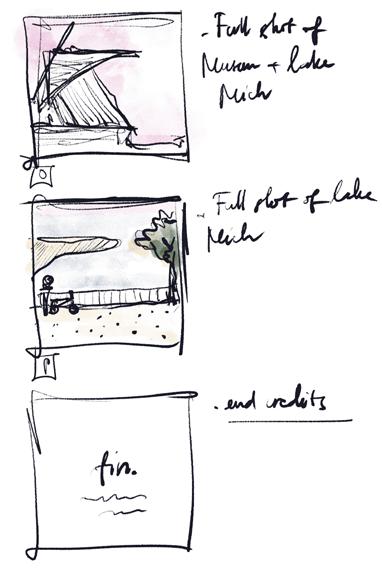 - Full shot of
Museum + lake
Mich
O
- Full shot of lake
Mich
P
fin.
- end credits